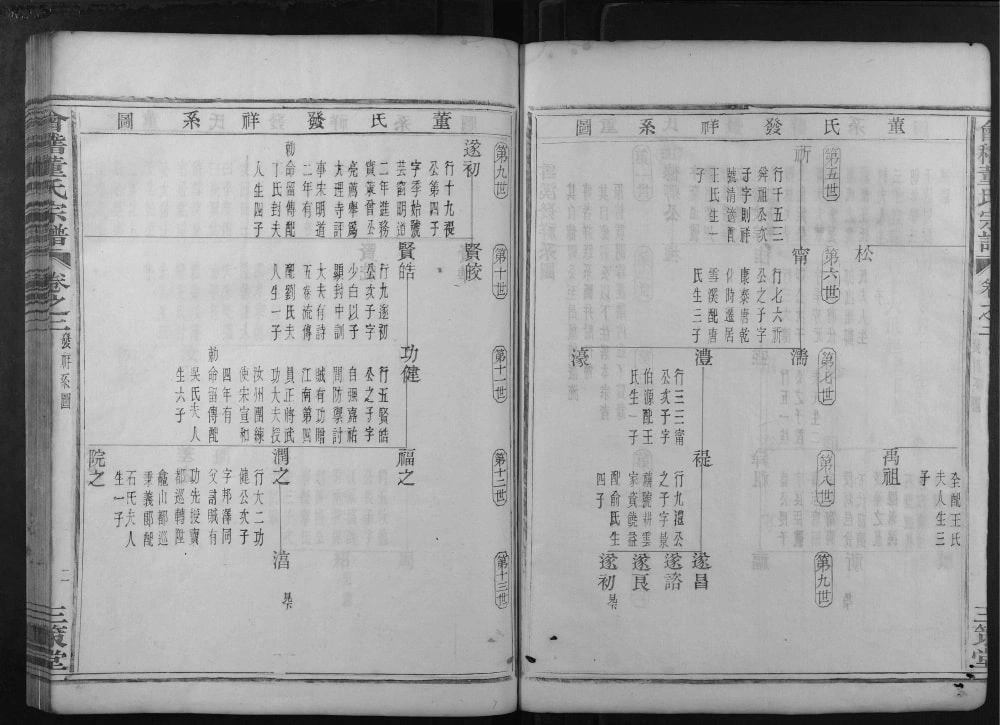 董氏發祥系圖
第五世
第六世
第七世
第八世
第九世
全配王氏
夫人生三
子
禹祖
松
祈
行千五三
舜祖公次
子字則祥
號清善配
王氏生一
子
甯
行七六祈
公之子字
康泰唐乾
符時遷居
雪溪配唐
氏生三子
濡
澧
行三三甯
公次子字
伯源配王
氏生一子
濠
禔
行九澧公
之子字景
號耕雲
家資饒益
配俞氏生
四子
遂昌
遂諮
遂良
遂初
董氏發祥系圖
第九世
第十世
第十一世
第十二世
第十三世
遂初
行十九禔
公第四子
字季始號
芸窗明道
二年進務
實業曾公
亮薦舉屬
大理寺評
事宋明道
二年有
勅命留傳配
丁氏封夫
人生四子
賢皎
賢皓
行九遂初
公次子字
少白以子
顯封中訓
大夫有詩
五卷流傳
配劉氏夫
人生一子
功健
行五賢皓
公之子字
自強嘉祐
間防禦討
賊有功贈
江南第四
員正將武
功大夫授
汝州團練
使宋宣和
四年有
勅命留傳配
吳氏夫人
生六子
福之
潤之
行大二功
健公次子
字邦澤同
父請賊有
功先授寶
都巡轉陞
山都巡
秉義郎配
石氏夫人
生一子
院之
會稽董氏宗譜
卷之二
發祥系圖
二
三策堂